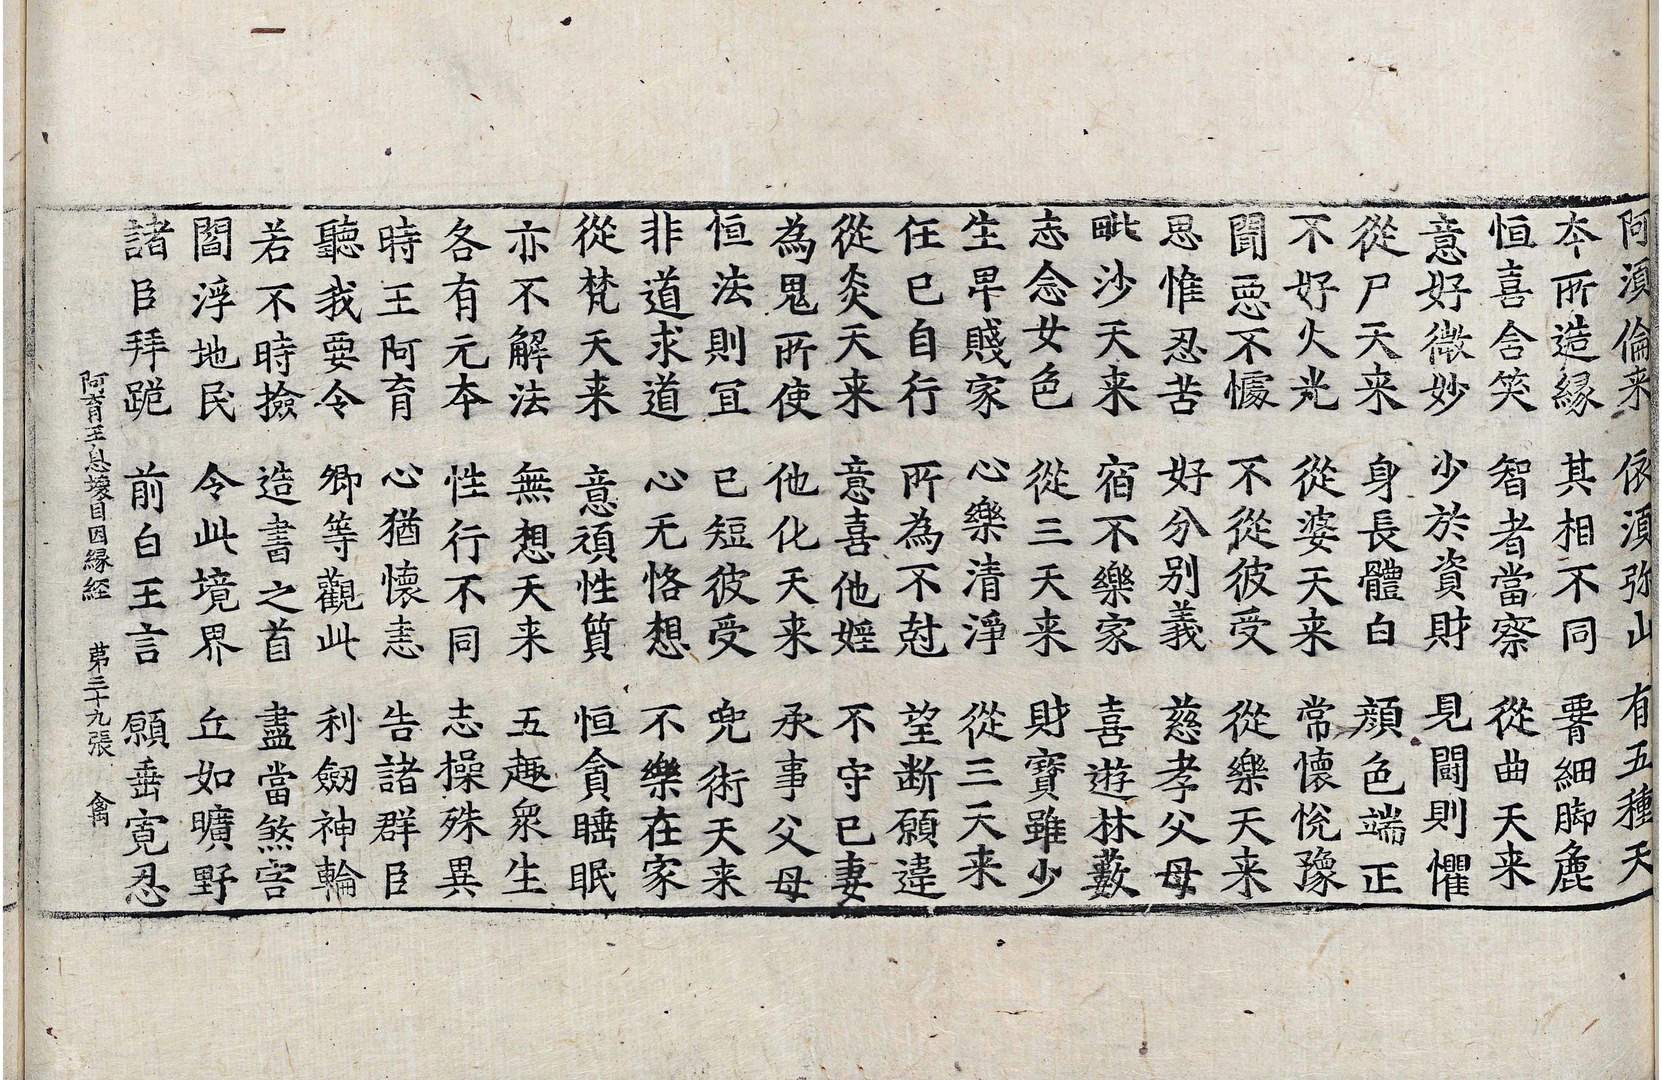 阿湏倫来 依湏弥山 有五種天
夲所造縁 其相不同 要細脚麁
恒喜含笑 智者當察 從曲天来
意好微妙 少於資財 見鬪則懼
從尸天来 身長體白 顔色端正
不好火光 從婆天来 常懷悅豫
聞惡不懅 不從彼受 從樂天来
思惟忍苦 好分別義 慈孝父母
毗沙天来 宿不樂家 喜遊林藪
志念女色 從三天来 財寶雖少
生卑賤家 心樂清淨 從三天来
任已自行 所為不尅 望断願違
從炎天来 意喜他婬 不守已妻
為鬼所使 他化天来 承事父母
恒法則宜 已短彼受 兜術天来
非道求道 心无悋想 不樂在家
從梵天来 意頑性質 恒貪睡眠
亦不解法 無想天来 五趣衆生
各有元夲 性行不同 志操殊異
時王阿育 心猶懷恚 告諸群臣
聽我要令 卿等觀此 利劒神輪
若不時撿 造書之首 盡當煞害
閻浮地民 令此境界 丘如曠野
諸臣拜跪 前白王言 願垂寛忍
阿育王息壞目因縁經 苐三十九張 禽